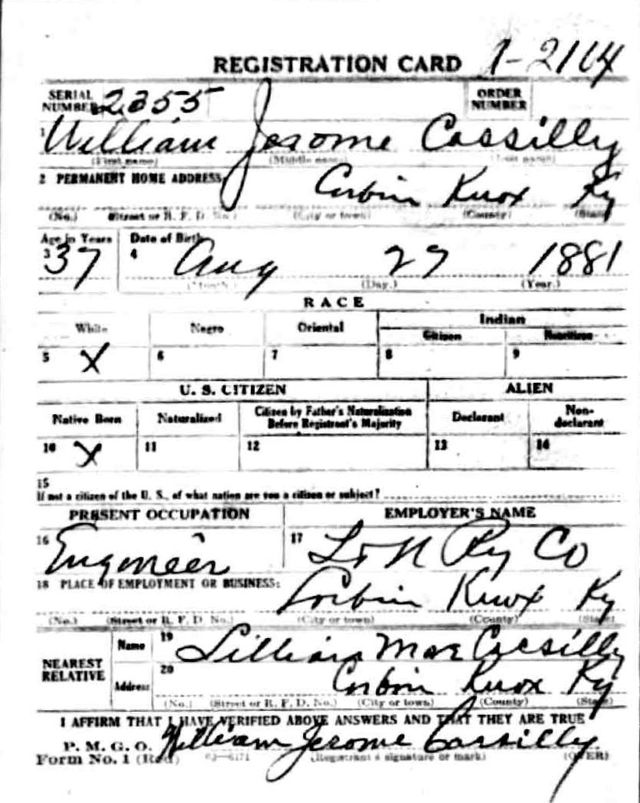 REGISTRATION CARD 1-2114
SERIAL NUMBER 2355 ORDER NUMBER
1 William Jerome Cassilly
(First name) (Middle name) (Last name)
2 PERMANENT HOME ADDRESS: Corbin Knox Ky
(No.) (Street or R. F. D. No.) (City or town) (County) (State)
Age in Years Date of Birth
3 37 4 Aug 27 1881
(Month.) (Day.) (Year.)
RACE
White Negro Oriental Indian
Citizen Noncitizen
5 X 6 7 8 9
U. S. CITIZEN ALIEN
Native Born Naturalized Citizen by Father's Naturalization Before Registrant's Majority Declarant Non-declarant
10 X 11 12 13 14
15
If not a citizen of the U. S., of what nation are you a citizen or subject?
PRESENT OCCUPATION EMPLOYER'S NAME
16 Engeneer 17 L & N Ry Co
18 PLACE OF EMPLOYMENT OR BUSINESS: Corbin Knox Ky
(No.) (Street or R. F. D. No.) (City or town) (County) (State)
NEAREST RELATIVE Name 19 Lillian Mae Cassilly
Address 20 Corbin Knox Ky
(No.) (Street or R. F. D. No.) (City or town) (County) (State)
I AFFIRM THAT I HAVE VERIFIED ABOVE ANSWERS AND THAT THEY ARE TRUE
P. M. G. O.
Form No. 1 (Red) William Jerome Cassilly
(Registrant's signature or mark) (OVER)